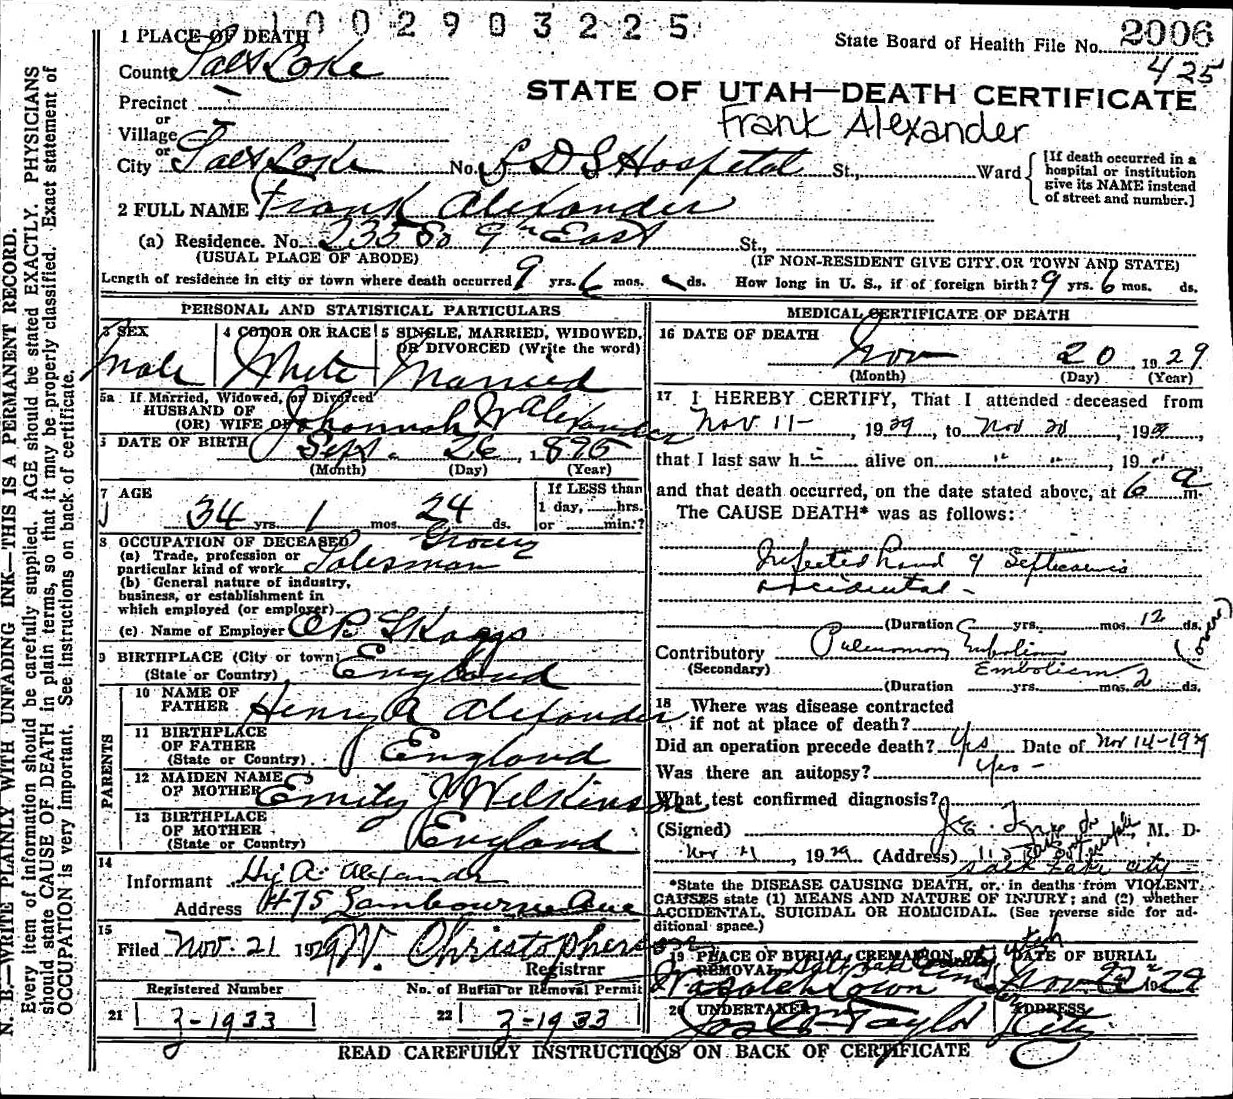 1002903225
1 PLACE OF DEATH
State Board of Health File No. 2006
425
County Salt Lake
STATE OF UTAH—DEATH CERTIFICATE
Precinct
or
Frank Alexander
Village
or
City Salt Lake No. L D S Hospital St., Ward
[If death occurred in a
hospital or institution
give its NAME instead
of street and number.]
2 FULL NAME Frank Alexander
(a) Residence. No. 235 So 9th East St.,
(USUAL PLACE OF ABODE) (IF NON-RESIDENT GIVE CITY OR TOWN AND STATE)
Length of residence in city or town where death occurred 9 yrs. 6 mos. ds. How long in U. S., if of foreign birth? 9 yrs. 6 mos. ds.
PERSONAL AND STATISTICAL PARTICULARS
3 SEX
Male
4 COLOR OR RACE
White
5 SINGLE, MARRIED, WIDOWED,
OR DIVORCED (Write the word)
Married
5a If Married, Widowed, or Divorced
HUSBAND OF
(OR) WIFE OF Johannah W Alexander
6 DATE OF BIRTH Sept. 26, 1895
(Month) (Day) (Year)
7 AGE
34 yrs. 1 mos. 24 ds.
If LESS than
1 day, hrs.
or min.?
8 OCCUPATION OF DECEASED
(a) Trade, profession or
particular kind of work Grocery Salesman
(b) General nature of industry,
business, or establishment in
which employed (or employer)
(c) Name of Employer O P Skaggs
9 BIRTHPLACE (City or town)
(State or Country) England
PARENTS
10 NAME OF
FATHER Henry A Alexander
11 BIRTHPLACE
OF FATHER
(State or Country) England
12 MAIDEN NAME
OF MOTHER Emily J Wilkinson
13 BIRTHPLACE
OF MOTHER
(State or Country) England
14
Informant Hy. A. Alexander
Address 475 Lambourne Ave
15
Filed Nov. 21 1929 W. Christopherson
Registrar
Registered Number No. of Burial or Removal Permit
21 Z-1933 22 Z-1933
MEDICAL CERTIFICATE OF DEATH
16 DATE OF DEATH
Nov 20, 1929
(Month) (Day) (Year)
17 I HEREBY CERTIFY, That I attended deceased from
Nov 11-, 1929, to Nov 20, 1929,
that I last saw h alive on " ", 19
and that death occurred, on the date stated above, at 6 a m.
The CAUSE DEATH* was as follows:
Infected hand & Septicemia
accidental -
(Duration yrs. mos. 12 ds.
Contributory Pulmonary Embolism (over)
(Secondary) Embolism
(Duration yrs. mos. 2 ds.
18 Where was disease contracted
if not at place of death?
Did an operation precede death? Yes Date of Nov 14-1929
Was there an autopsy? Yes -
What test confirmed diagnosis?
(Signed) M. D.
Nov 21, 1929 (Address)
Salt Lake City
*State the DISEASE CAUSING DEATH, or, in deaths from VIOLENT
CAUSES state (1) MEANS AND NATURE OF INJURY; and (2) whether
ACCIDENTAL, SUICIDAL OR HOMICIDAL. (See reverse side for ad-
ditional space.)
19 PLACE OF BURIAL, CREMATION OR
REMOVAL Salt Lake County, Utah
Wasatch Lawn Cemetery
DATE OF BURIAL
Nov 22 1929
20 UNDERTAKER
Jos Wm Taylor
ADDRESS
City
READ CAREFULLY INSTRUCTIONS ON BACK OF CERTIFICATE
N. B.—WRITE PLAINLY WITH UNFADING INK—THIS IS A PERMANENT RECORD.
Every item of information should be carefully supplied. AGE should be stated EXACTLY. PHYSICIANS
should state CAUSE OF DEATH in plain terms, so that it may be properly classified. Exact statement of
OCCUPATION is very important. See instructions on back of certificate.